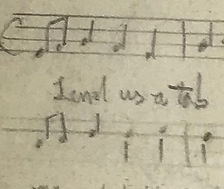 Lend us a tab